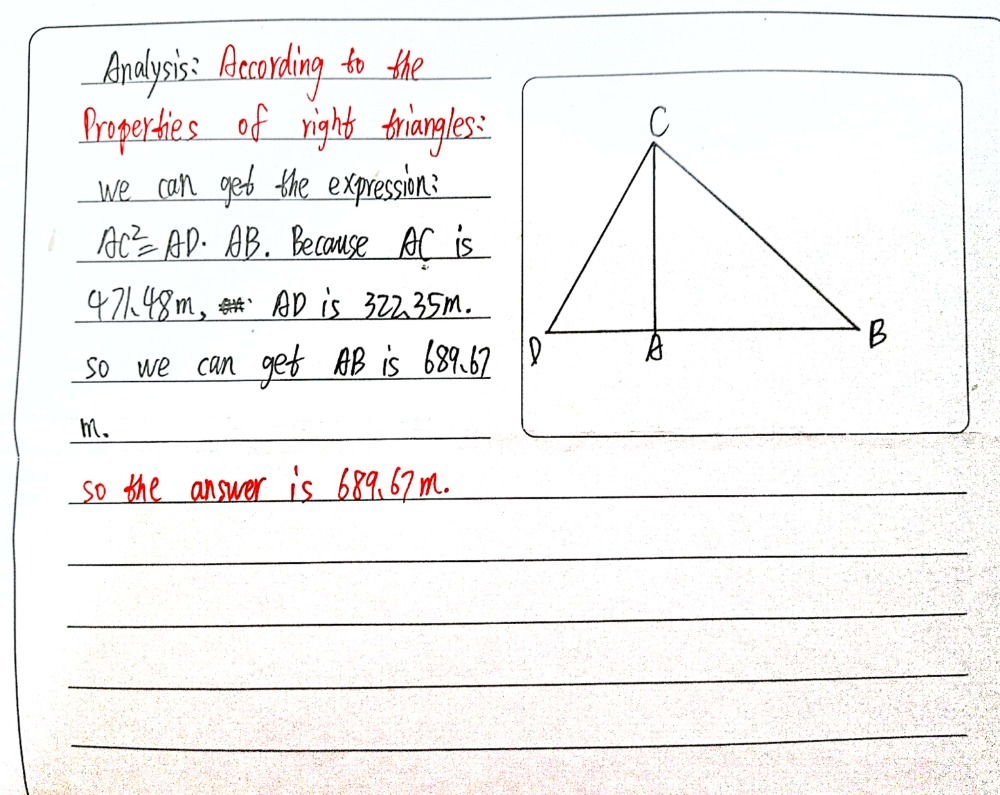 Analysis: According to the
Properties of right triangles:
we can get the expression:
AC²= AD· AB. Because AC is
471.48m, AD is 322.35m.
so we can get AB is 689.67
m.
so the answer is 689.67m.
C
D
A
B